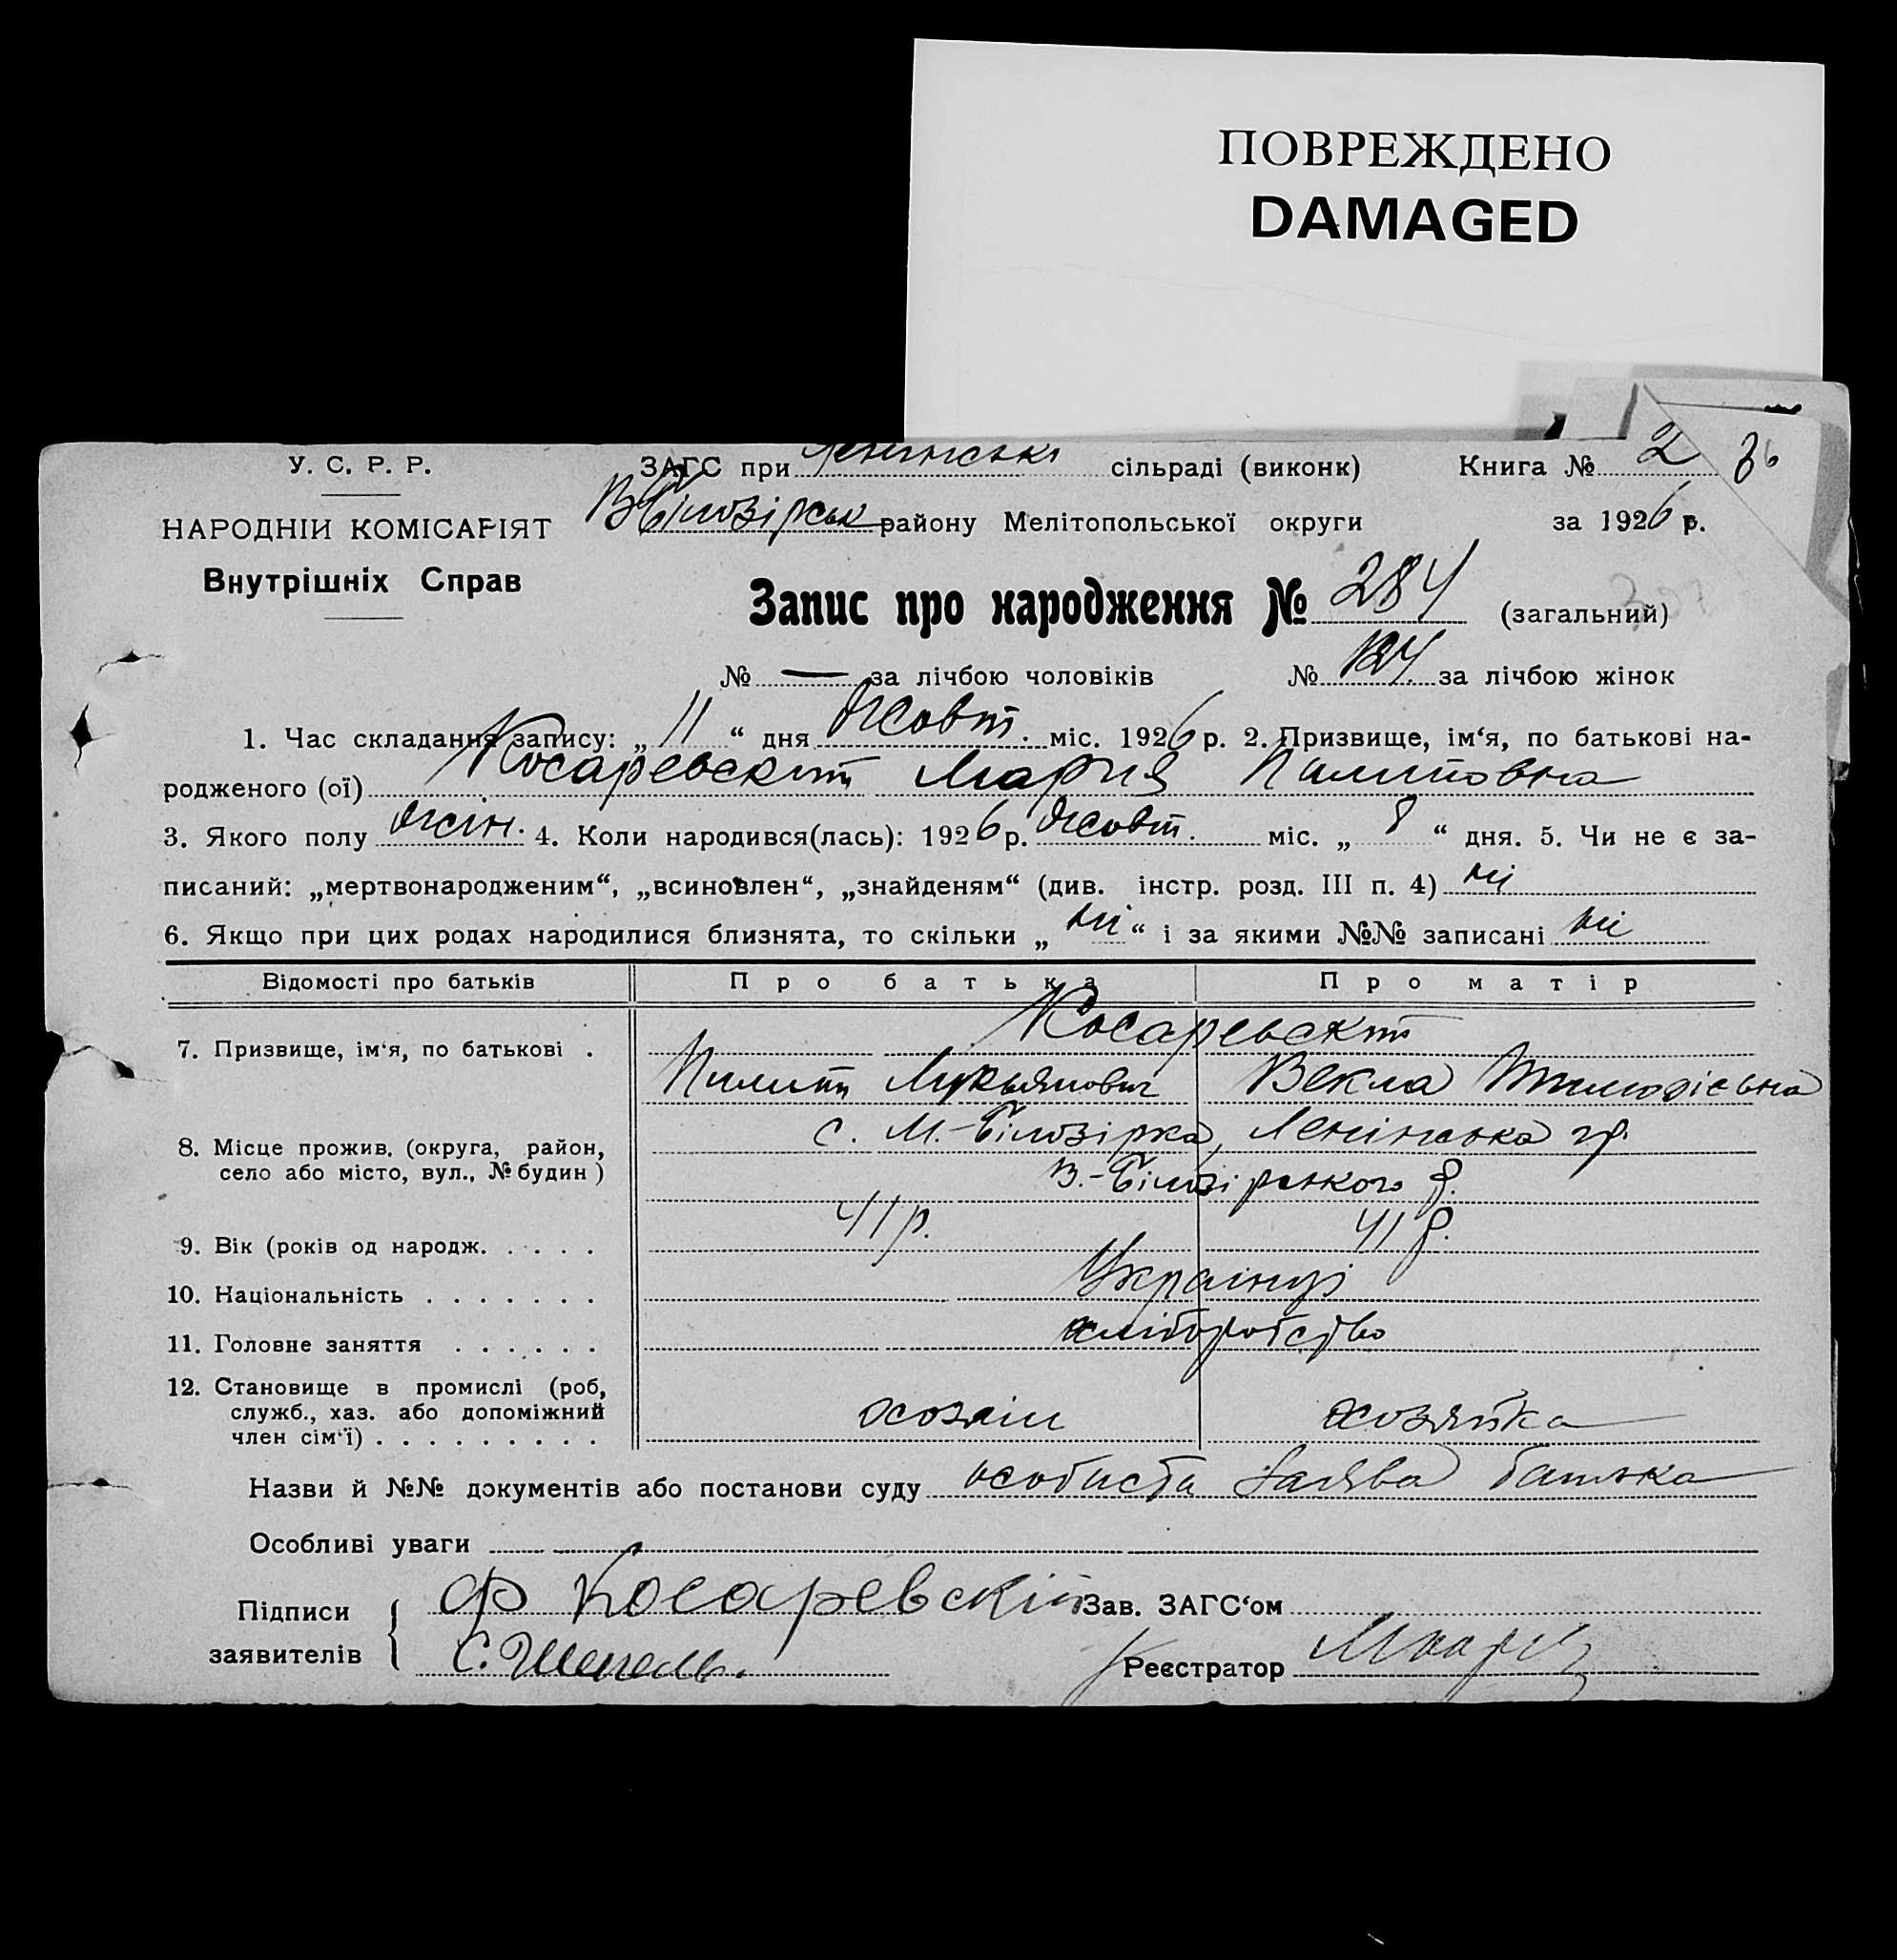 ПОВРЕЖДЕНО
DAMAGED
У. С. Р. Р.
ЗАГС при Ленінські сільраді (виконк) Книга № 2
НАРОДНІЙ КОМІСАРІЯТ
В Білозірськ району Мелітопольської округи за 1926 р.
Внутрішніх Справ
Запис про народження № 284 (загальний)
№ — за лічбою чоловіків № 124 за лічбою жінок
1. Час складання запису: „ 11 “ дня Жовт. міс. 1926 р. 2. Призвище, ім‘я, по батькові на-
родженого (ої) Косаревскит Мария Пилиповна
3. Якого полу жін. 4. Коли народився(лась): 1926 р. Жовт. міс. „ 8 “ дня. 5. Чи не є за-
писаний: „мертвонародженим“, „всиновлен“, „знайденям“ (див. інстр. розд. III п. 4) ні
6. Якщо при цих родах народилися близнята, то скільки „ ні “ і за якими №№ записані ні
Відомості про батьків Про батька Про матір
7. Призвище, ім‘я, по батькові . Косаревскит
Пилип Лукьянович Векла Тимофієвна
8. Місце прожив. (округа, район, с. М.-Білозірка, Ленінська гр.
село або місто, вул., № будин) В.-Білозірського р.
9. Вік (років од народж. . . . . 41 р. 41 р.
10. Національність . . . . . . . Українці
11. Головне заняття . . . . . . хліборобство
12. Становище в промислі (роб,
служб., хаз. або допоміжний хозяін хозяйка
член сім‘ї) . . . . . . . . .
Назви й №№ документів або постанови суду особиста заява батька
Особливі уваги
Підписи Ф Косаревский Зав. ЗАГС‘ом
заявителів С. Шепель. Реєстратор